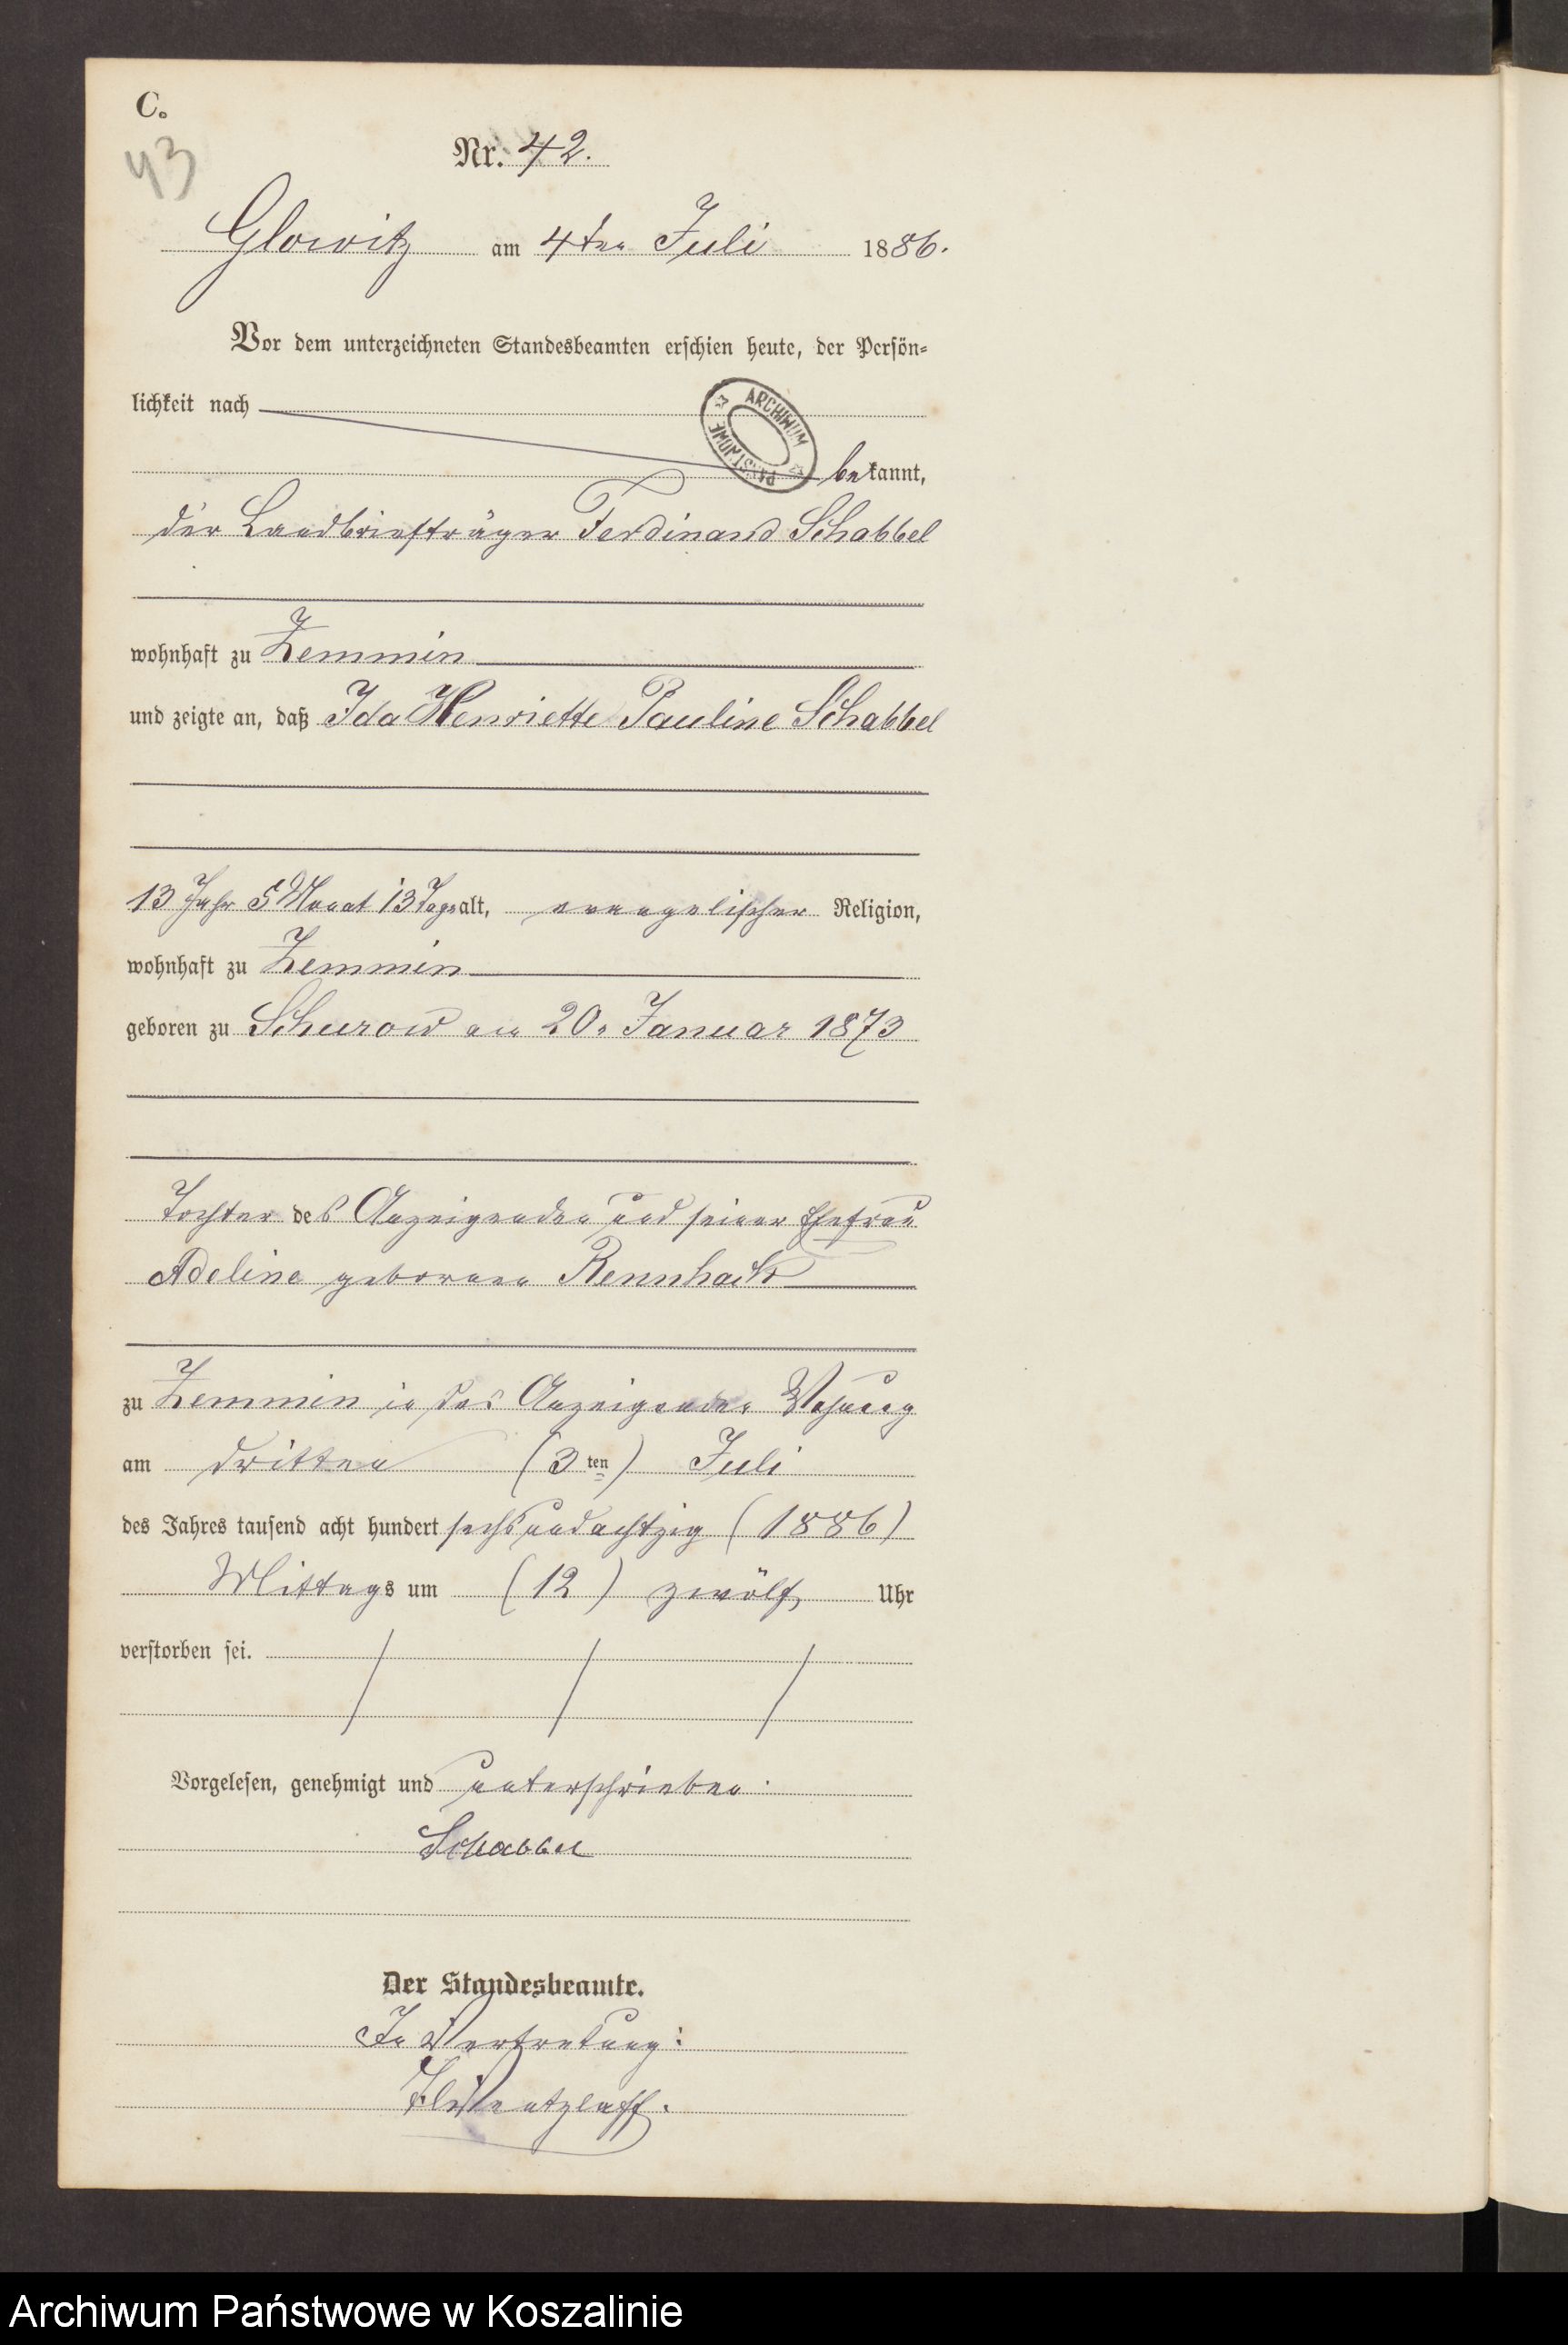 C.
43
Nr. 42.
Glowitz am 4ten Juli 1886.
Vor dem unterzeichneten Standesbeamten erschien heute, der Persön-
lichkeit nach
ARCHIWUM PAŃSTWOWE
bekannt,
der Landbriefträger Ferdinand Schabbel
wohnhaft zu Zemmin
und zeigte an, daß Ida Henriette Pauline Schabbel
13 Jahr 5 Monat 13 Tage alt, evangelischer Religion,
wohnhaft zu Zemmin
geboren zu Schurow am 20. Januar 1873
Tochter des Anzeigenden und seiner Ehefrau
Adeline geborenen Rennhack
zu Zemmin in des Anzeigenden Wohnung
am dritten (3ten) Juli
des Jahres tausend acht hundert sechsundachtzig (1886)
Mittags um (12) zwölf Uhr
verstorben sei.
Vorgelesen, genehmigt und unterschrieben.
Schabbel
Der Standesbeamte.
In Vertretung:
Archiwum Państwowe w Koszalinie